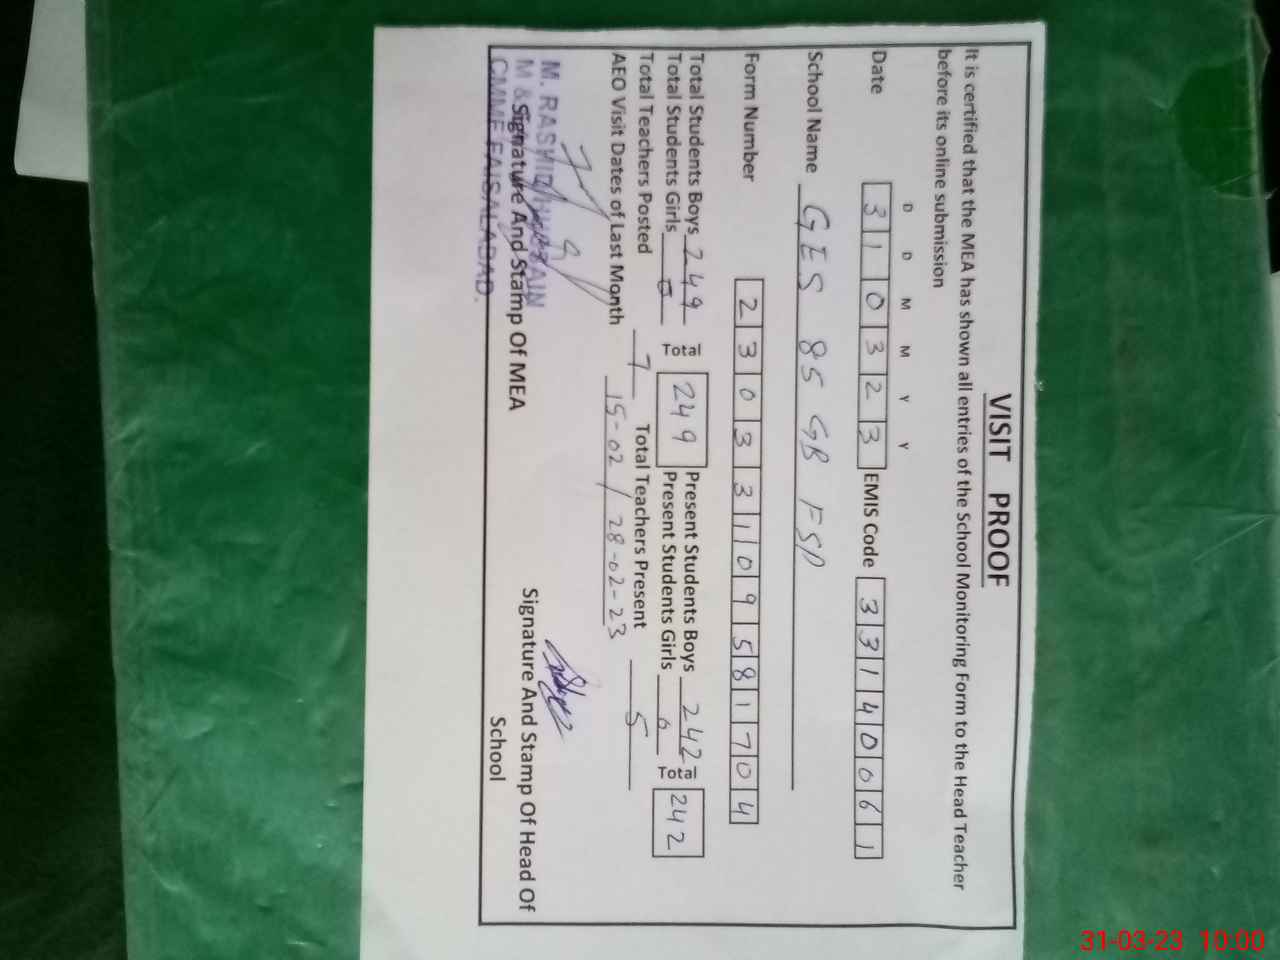 VISIT PROOF
It is certified that the MEA has shown all entries of the School Monitoring Form to the Head Teacher
before its online submission
D D M M Y Y
Date 310323 EMIS Code 33140061
School Name GES 85 GB FSD
Form Number 23033109581704
Total Students Boys 249 Total 249 Present Students Boys 242 Total 242
Total Students Girls 0 Present Students Girls 0
Total Teachers Posted 7 Total Teachers Present 5
AEO Visit Dates of Last Month 15-02 / 28-02-23
M. RASHID HUSSAIN
M &
CMMF FAISALABAD.
Signature And Stamp Of MEA
Signature And Stamp Of Head Of
School
31-03-23 10:00